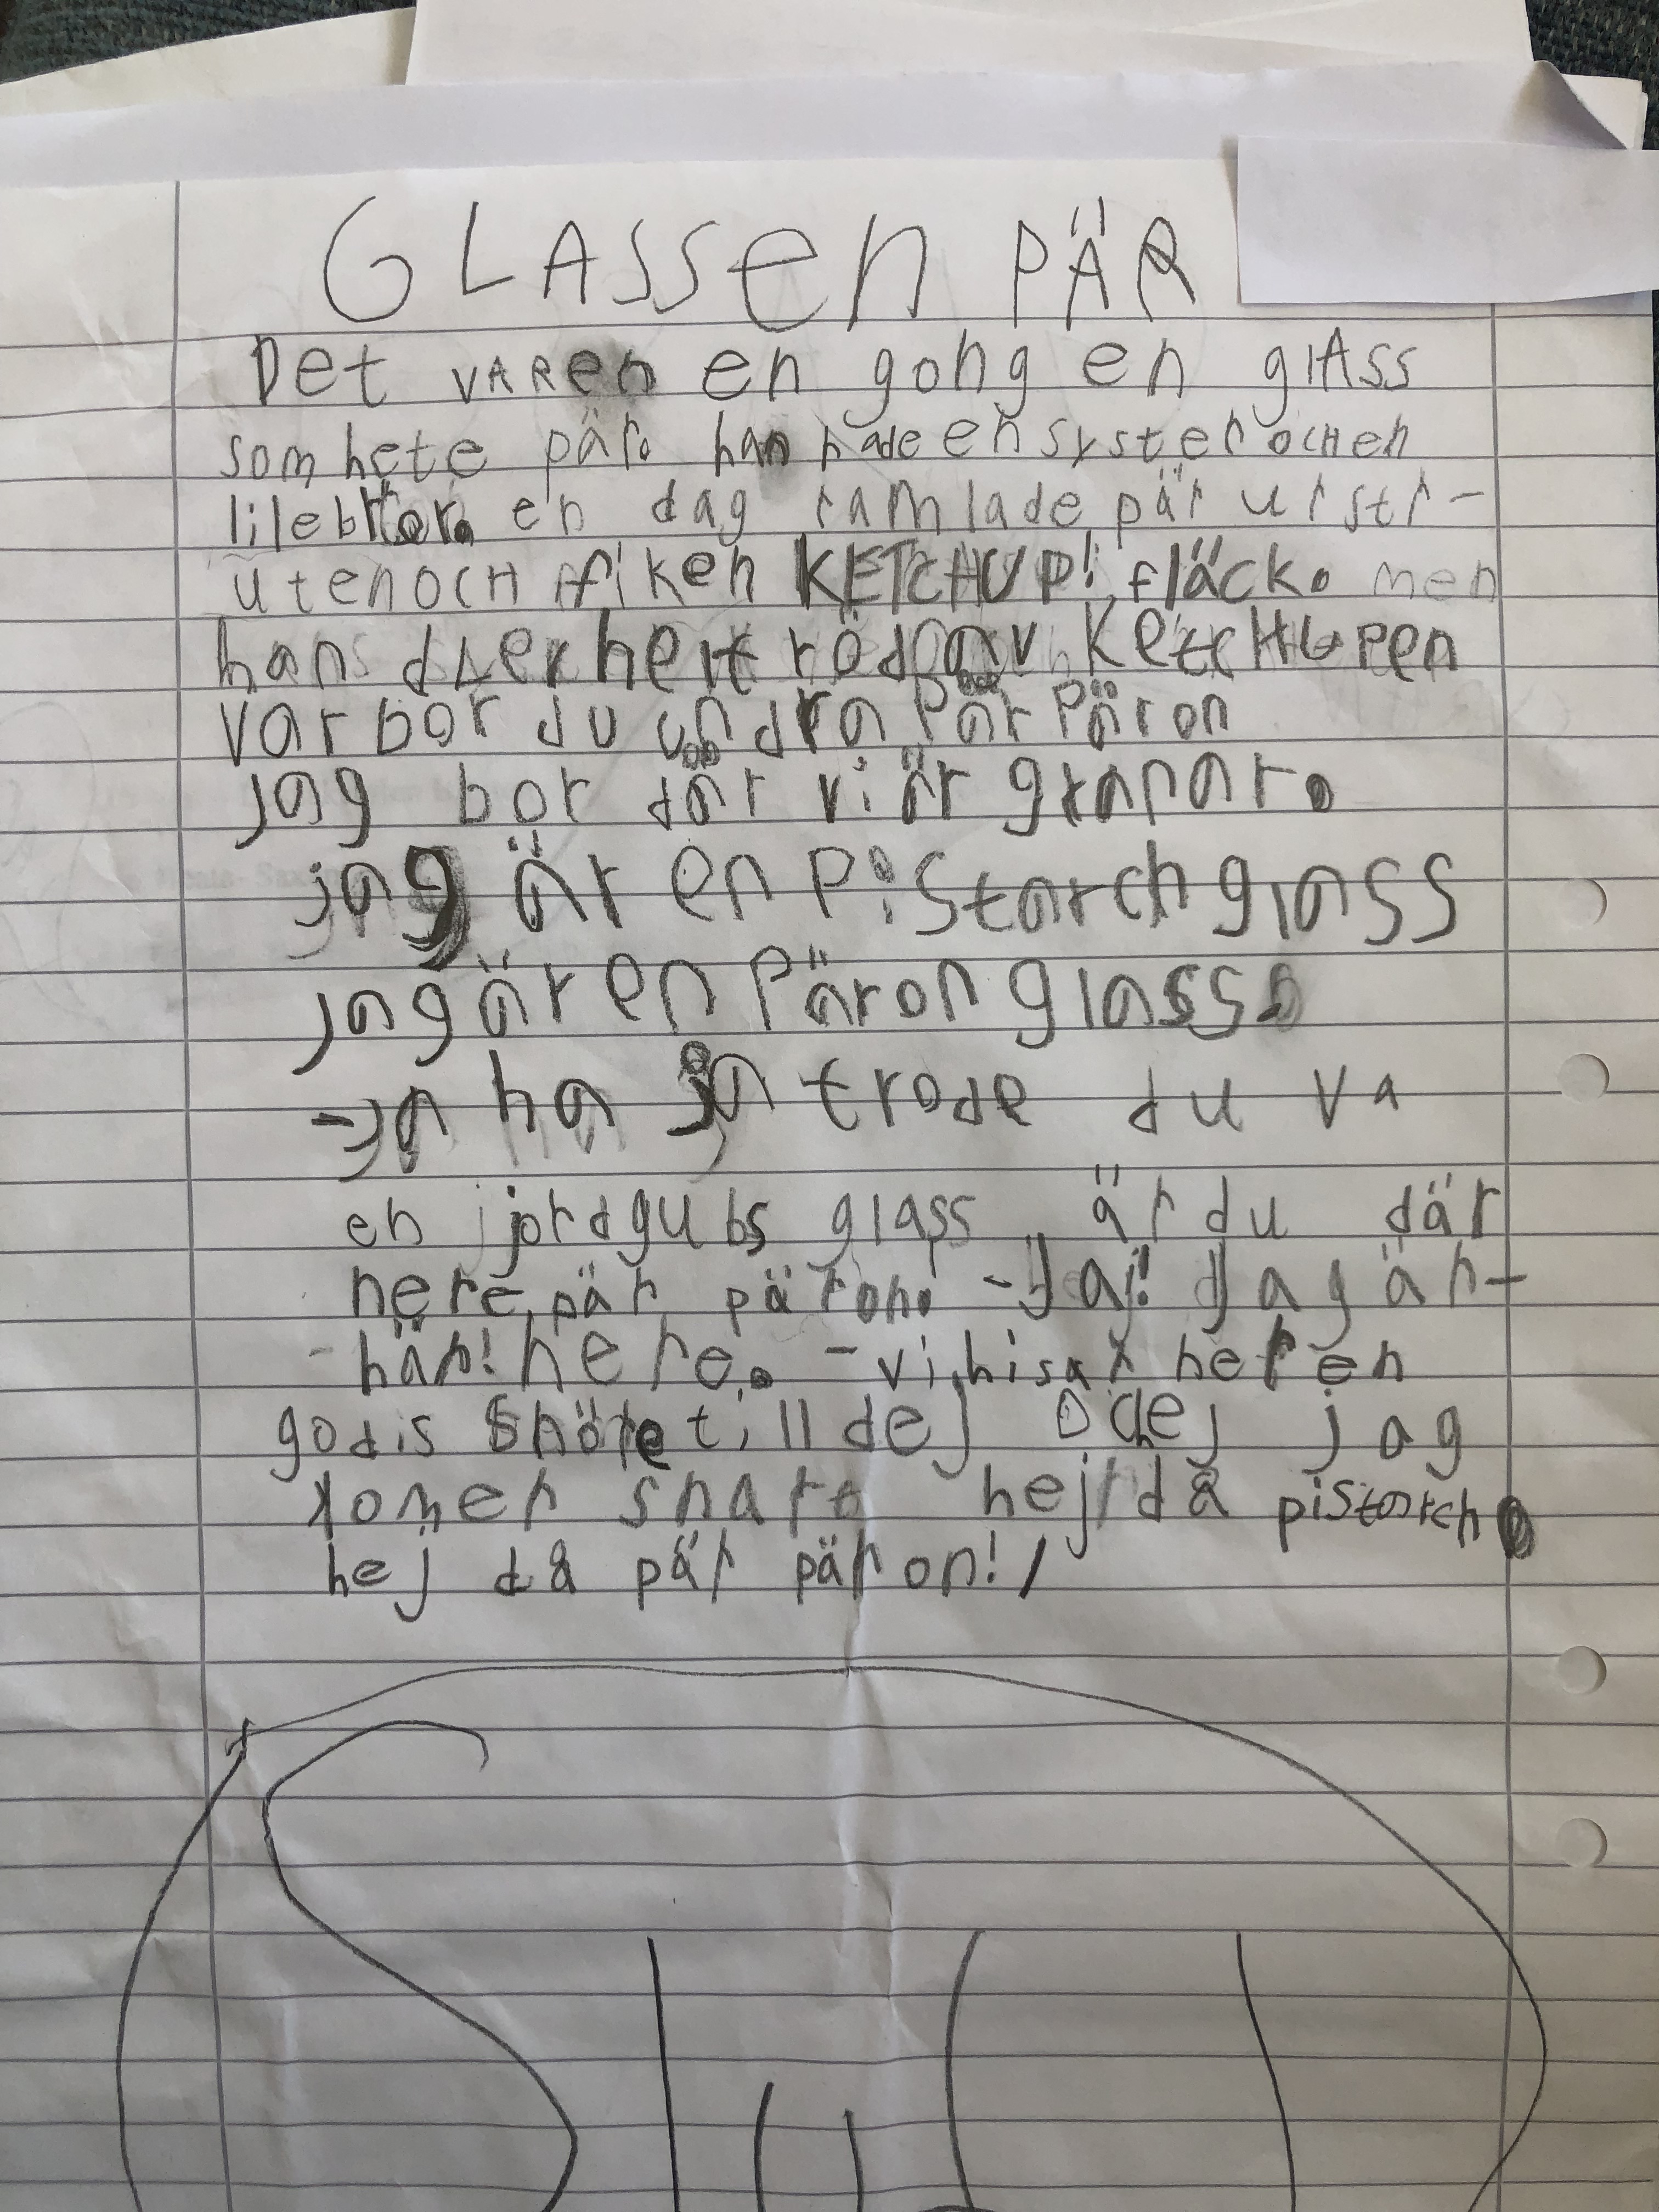 GLASSen PÄR
Det VAR en en gong en glAss
som hete pär. han hade en syster ocH en
lilebror. en dag ramlade pär ur str-
uten ocH fik en KETCHUP! fläck. men
hans är helt röd av KetcHupen
var bor du undra Pär Päron
jag bor där vi är granar.
jag är en Pistarch glass
jag är en Päron glass.
-ja ha ja trode du va
en jordgubs glass är du där
nere pär päron! -Jaj! Jag är-
-här! nere. - vi hisar ner en
godis snöre till dej okej jag
komer snart hej då pistarch
hej då pär päron!
Slut